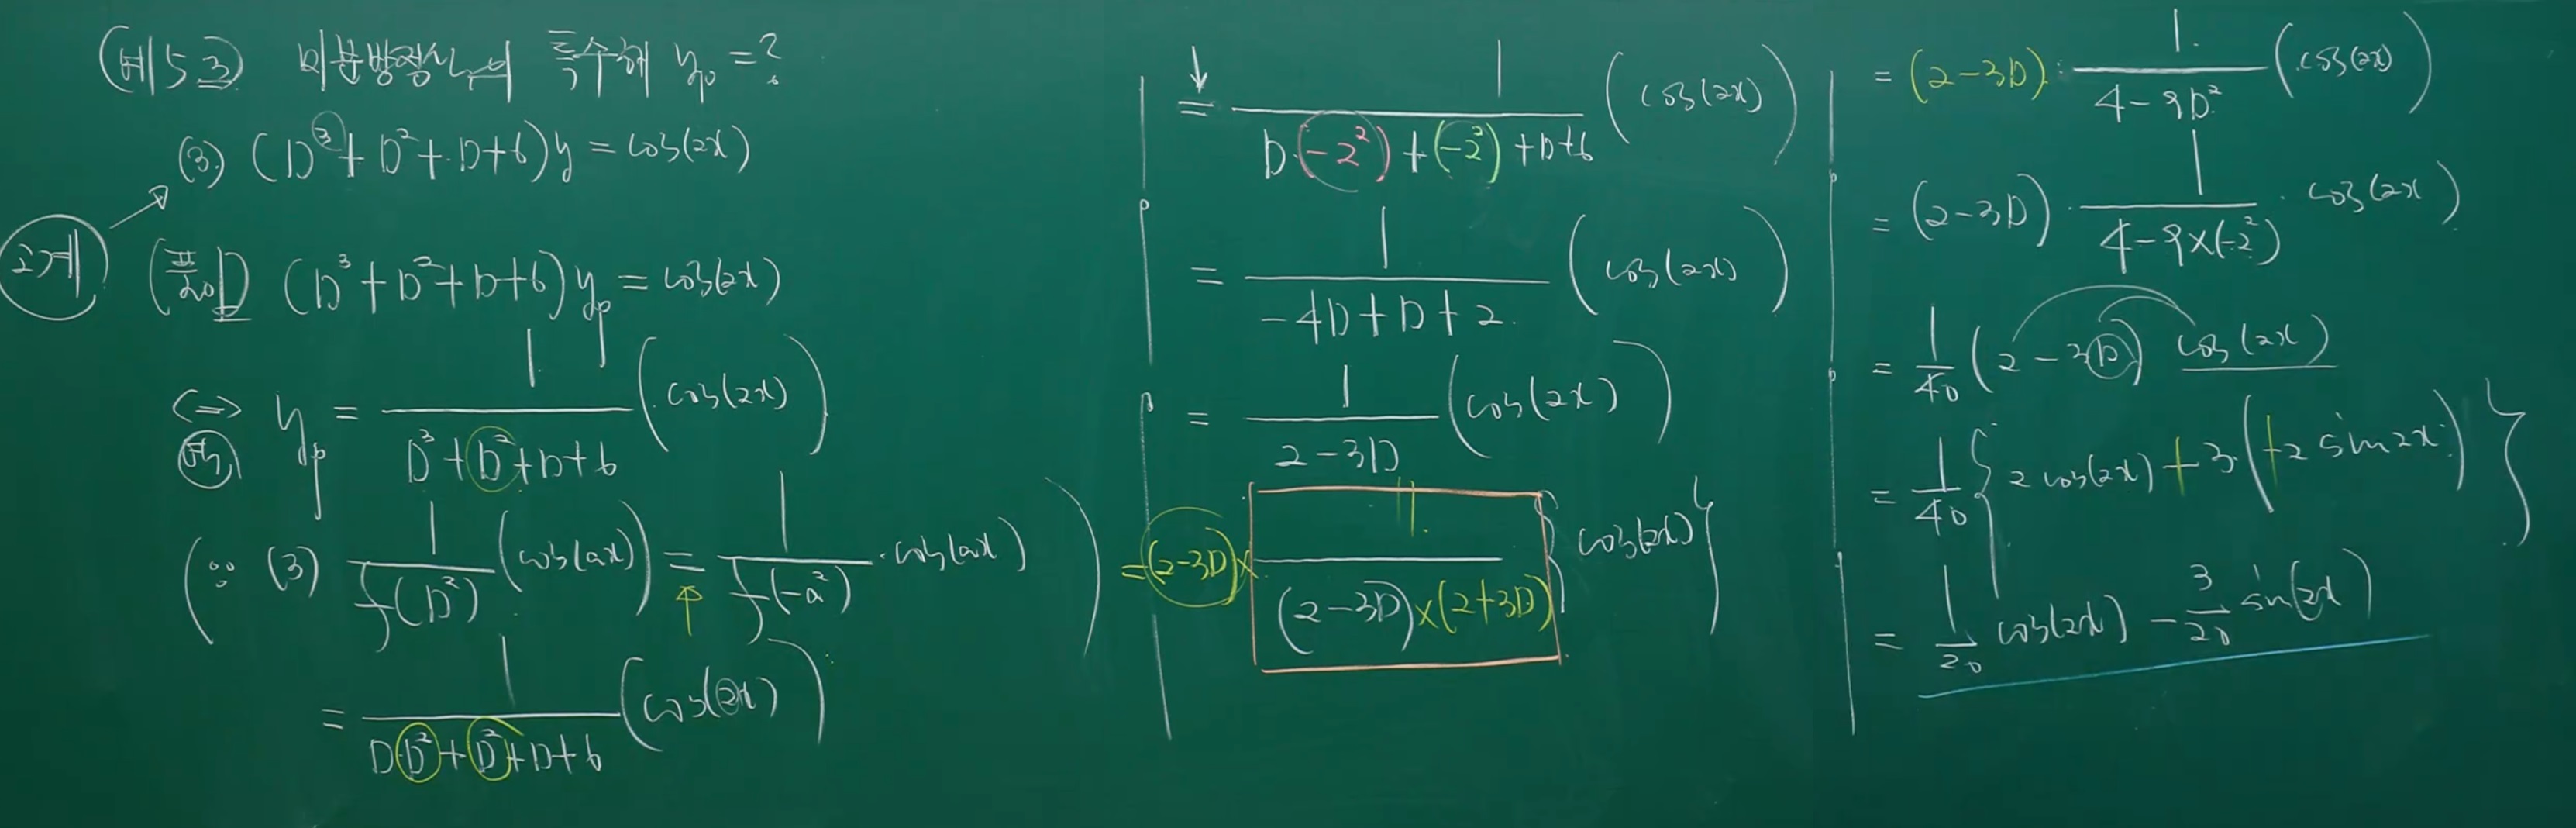 (예 5.3) 미분방정식의 특수해 y_p = ?
(3) (D³ + D² + D + 6)y = cos(2x)
2계
(풀이) (D³ + D² + D + 6)y_p = cos(2x)
⇔ y_p = 1/(D³ + D² + D + 6) (cos(2x))
(∵ (3) 1/f(D²) (cos(ax)) = 1/f(-a²) · cos(ax))
= 1/(D D² + D² + D + 6) (cos(2x))
↓
= 1/(D·(-2²) + (-2²) + D + 6) (cos(2x))
= 1/(-4D + D + 2) (cos(2x))
= 1/(2 - 3D) (cos(2x))
= (2-3D) × { 1/((2-3D)×(2+3D)) } cos(2x) }
= (2-3D) · 1/(4 - 9D²) (cos(2x))
= (2-3D) · 1/(4 - 9×(-2²)) · cos(2x))
= 1/40 (2 - 3D) cos(2x)
= 1/40 { 2 cos(2x) + 3·(+2 sin 2x) }
= 1/20 cos(2x) - 3/20 sin(2x)